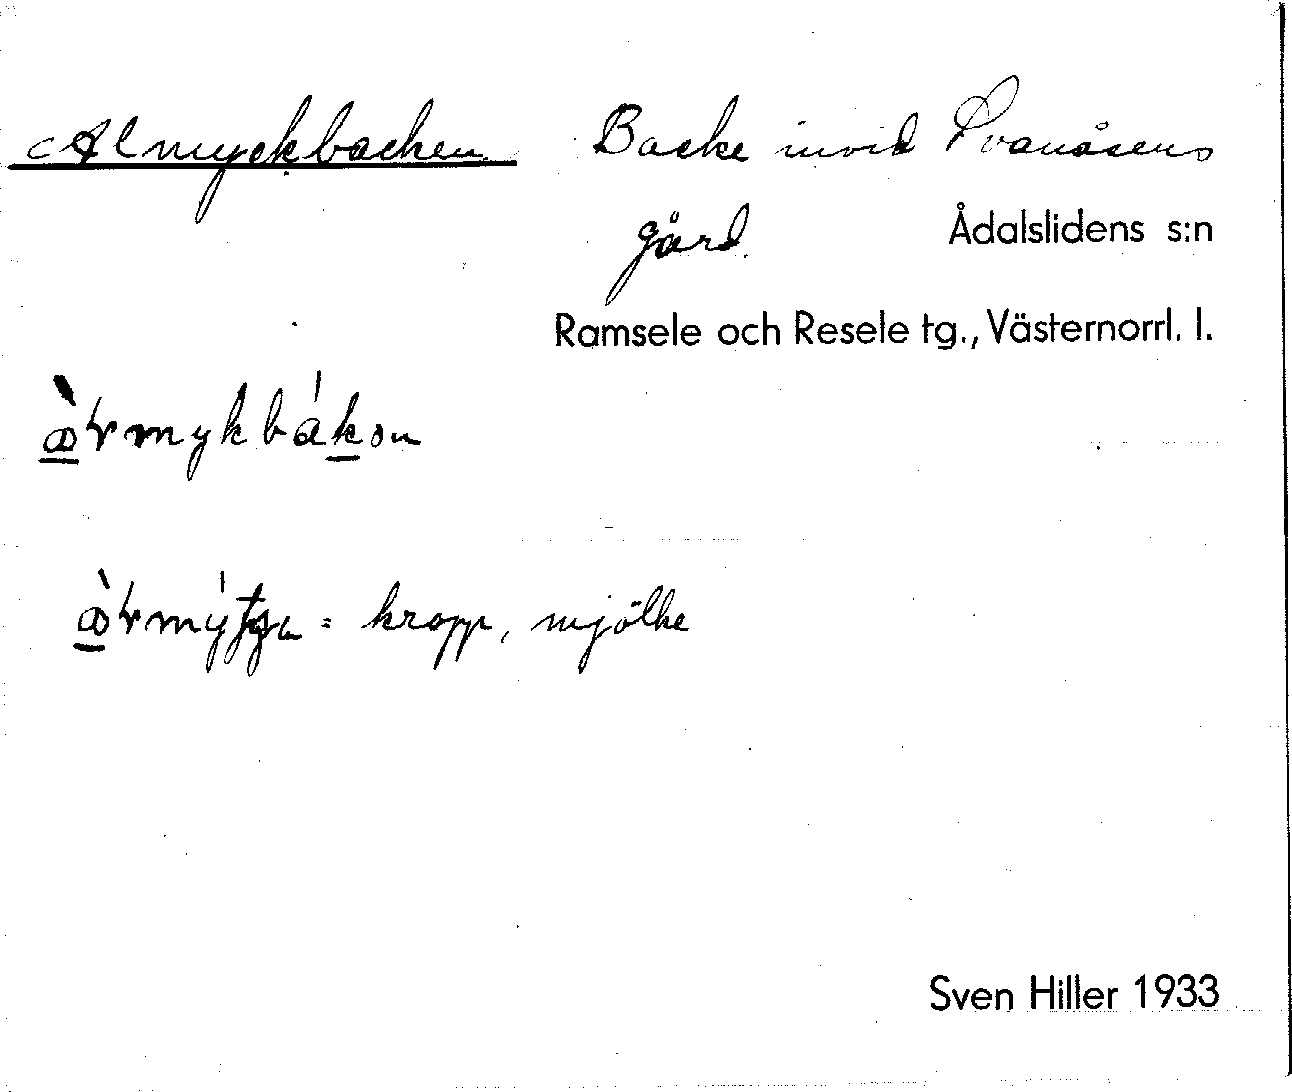 Almyckbacken. Backe invid Svanåsens
gård. Ådalslidens s:n
Ramsele och Resele tg., Västernorrl. l.
mykbákən
= kropp, mjölke
Sven Hiller 1933